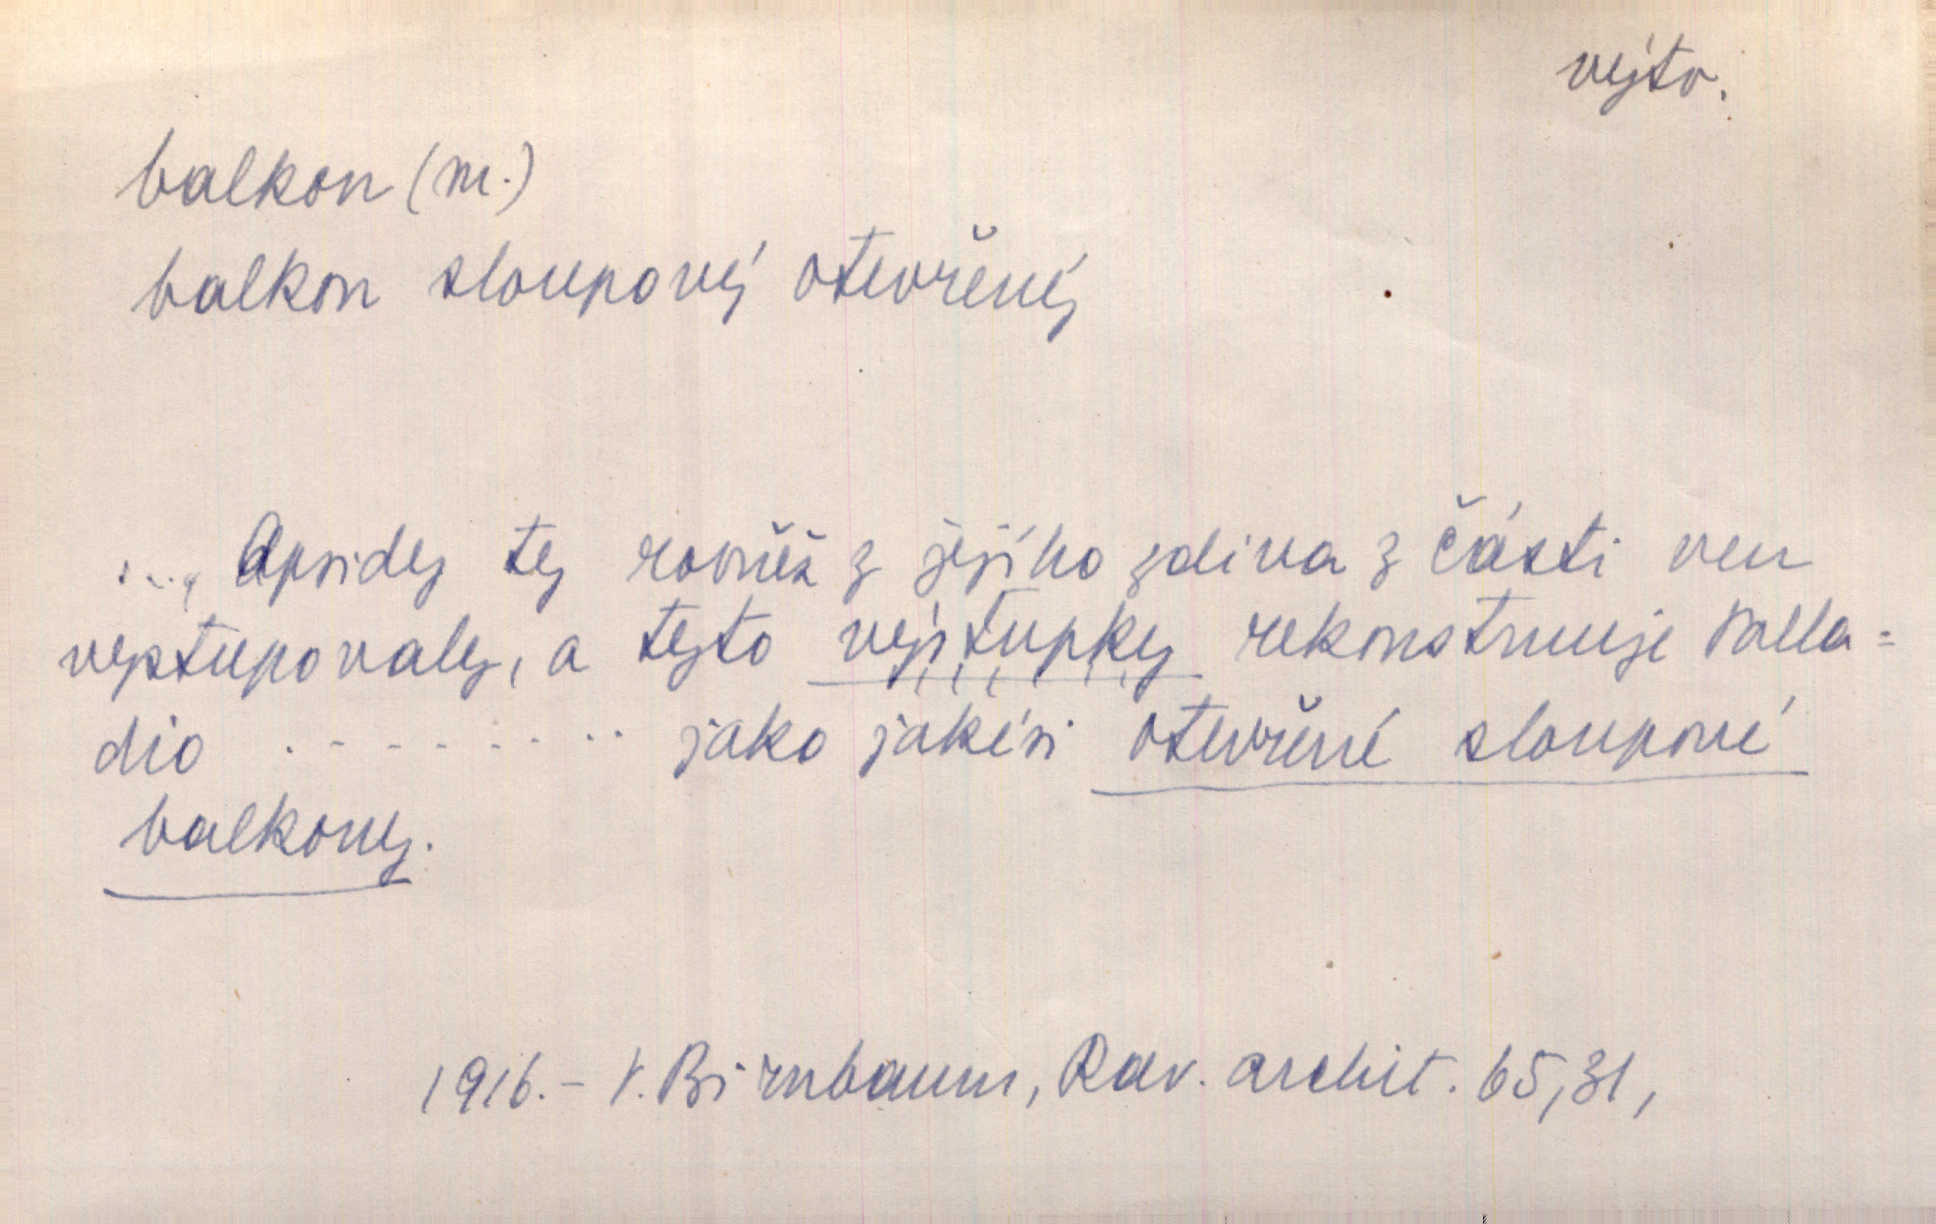 výtv.
balkon (m.)
balkon sloupový otevřený
..., Apsidy ty rovněž z jejího zdiva z části ven
vystupovaly, a tyto výstupky rekonstruuje Palla=
dio ......... jako jakési otevřené sloupové
balkony.
1916. – V. Birnbaum, Rav. archit. 65,31,